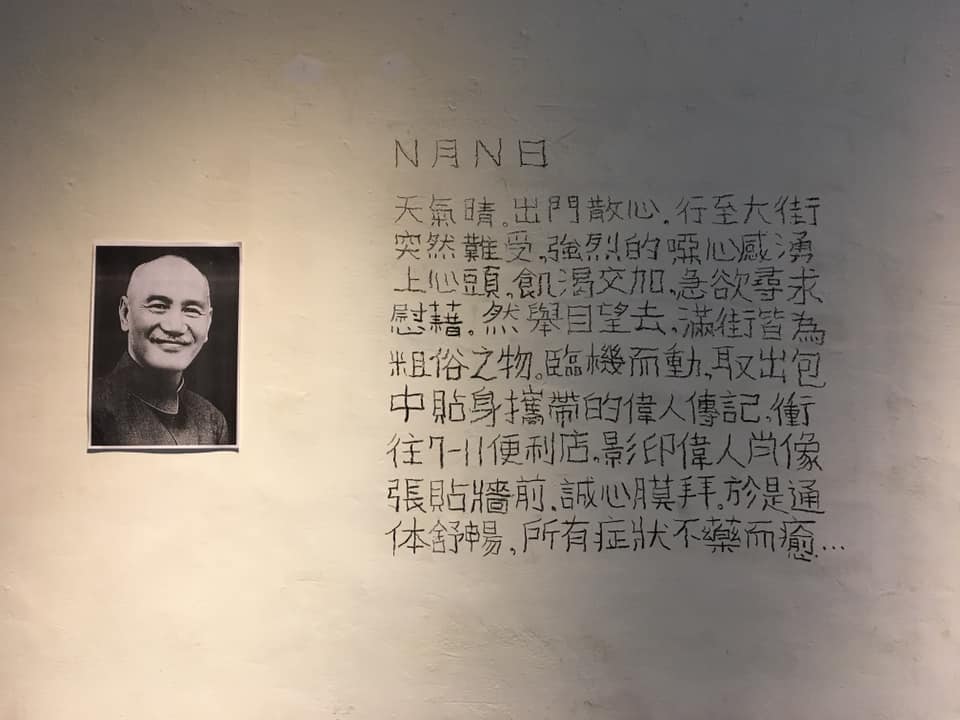 N月N日
天氣晴。出門散心。行至大街
突然難受,強烈的噁心感湧
上心頭。飢渴交加,急欲尋求
慰藉。然舉目望去,滿街皆為
粗俗之物。臨機而動,取出包
中貼身攜帶的偉人傳記,衝
往7-11便利店,影印偉人肖像
張貼牆前,誠心膜拜。於是通
体舒暢,所有症狀不藥而癒...